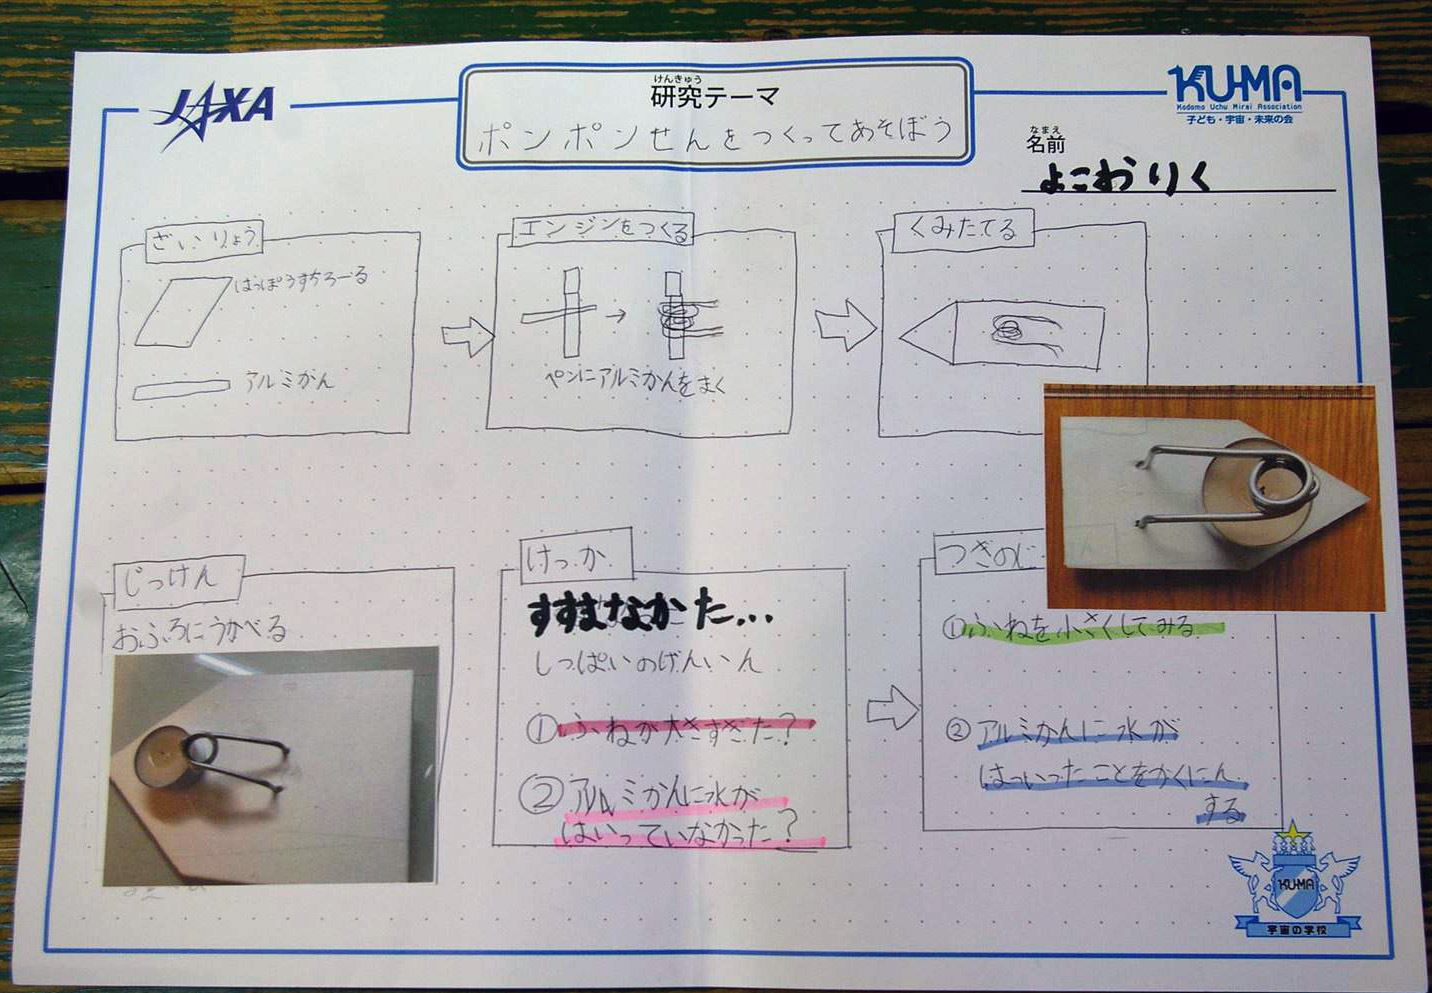 JAXA
けんきゅう
研究テーマ
ポンポンせんをつくってあそぼう
KU-MA
Kodomo Uchu Mirai Association
子ども・宇宙・未来の会
なまえ
名前
よこおりく
ざいりょう
はっぽうすちろーる
アルミかん
エンジンをつくる
ペンにアルミかんをまく
くみたてる
じっけん
おふろにうかべる
けっか
すすまなかた...
しっぱいのげんいん
①ふねが大きすぎた?
②アルミかんに水が
はいっていなかった?
つぎのじ
①ふねを小さくしてみる
②アルミかんに水が
はいったことをかくにん
する
KU-MA
宇宙の学校